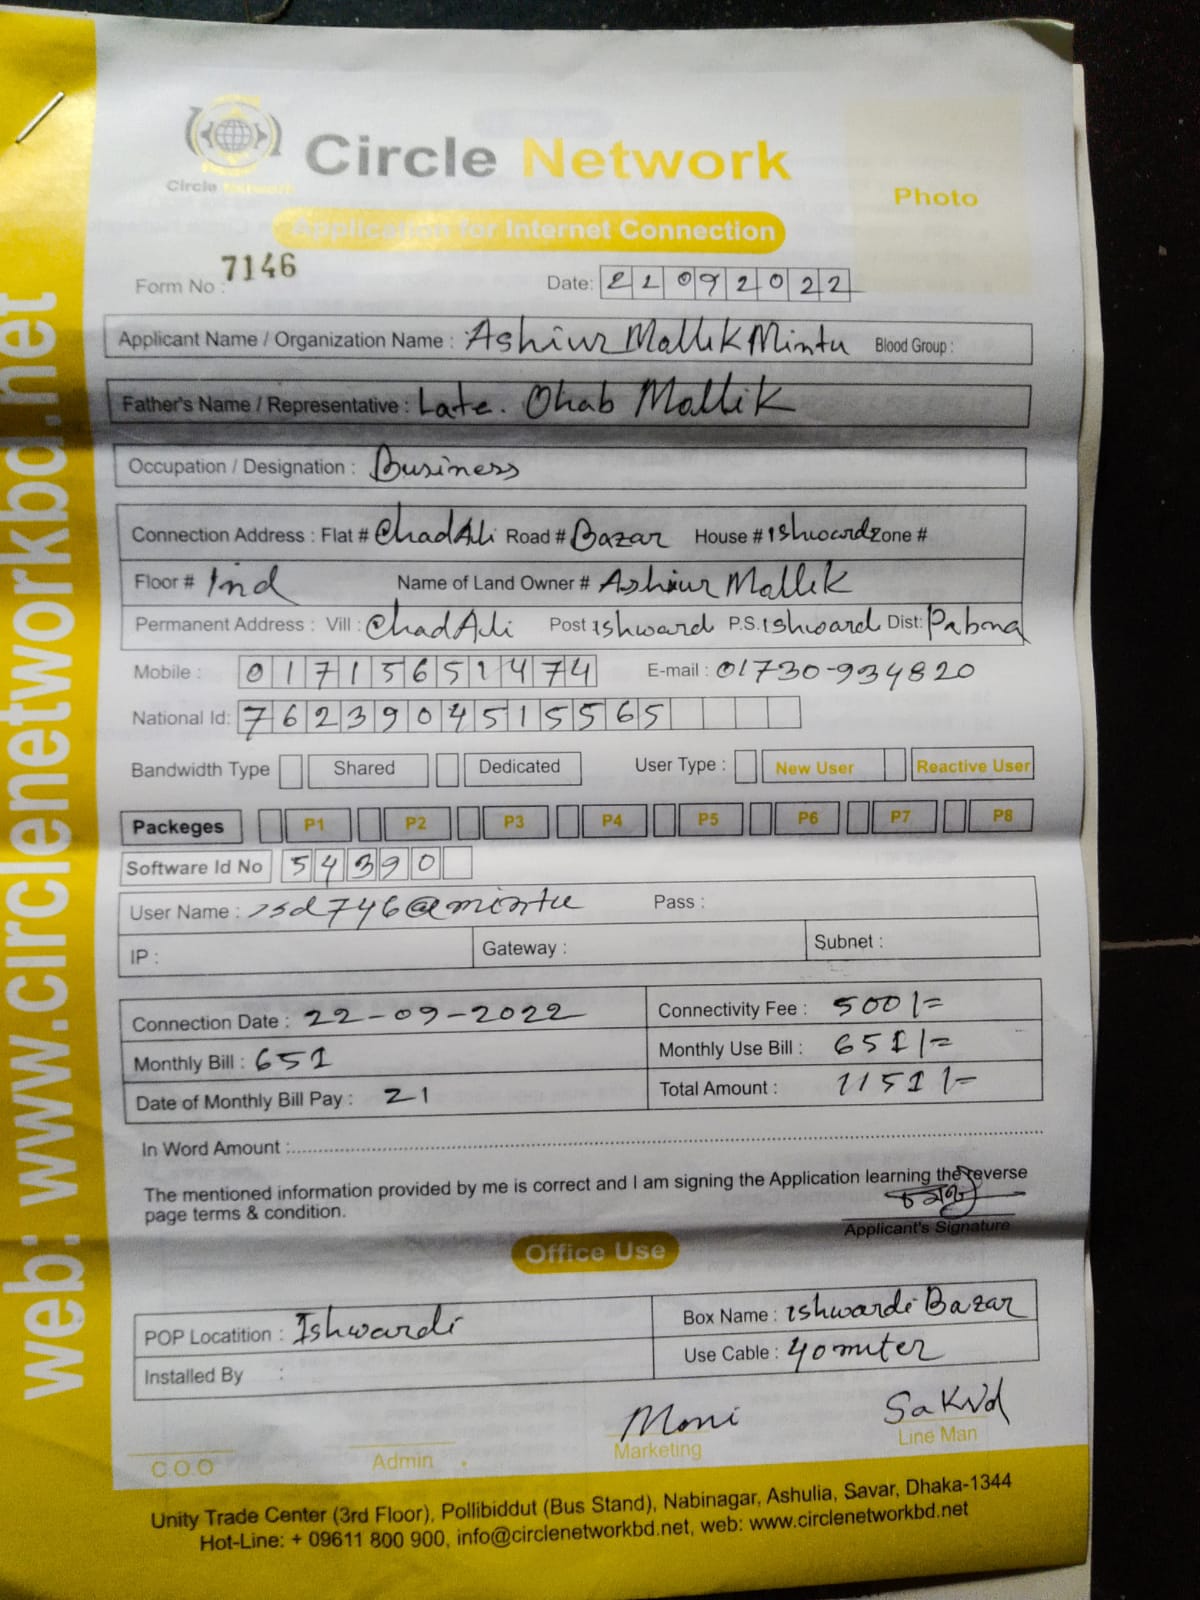 web: www.circlenetworkbd.net
Circle Network
Circle Network
Photo
Application for Internet Connection
Form No : 7146
Date: 21092022
Applicant Name / Organization Name : Ashiur Mallik Mintu Blood Group :
Father's Name / Representative : Late. Ohab Mallik
Occupation / Designation : Business
Connection Address : Flat # ChadAli Road # Bazar House # ishward Zone #
Floor # Ind Name of Land Owner # Ashiur Mallik
Permanent Address : Vill : ChadAli Post ishward P.S. ishward Dist: Pabna
Mobile : 01715651474 E-mail : 01730-934820
National Id: 7623904515565
Bandwidth Type Shared Dedicated User Type : New User Reactive User
Packeges P1 P2 P3 P4 P5 P6 P7 P8
Software Id No 54390
User Name : isd746@mintu Pass :
IP : Gateway : Subnet :
Connection Date : 22-09-2022 Connectivity Fee : 500/=
Monthly Bill : 651 Monthly Use Bill : 651/=
Date of Monthly Bill Pay : 21 Total Amount : 1151/-
In Word Amount :
The mentioned information provided by me is correct and I am signing the Application learning the reverse
page terms & condition.
Applicant's Signature
Office Use
POP Locatition : Ishwardi Box Name : ishwardi Bazar
Installed By : Use Cable : 40 miter
Moni Sakvd
C.O.O Admin Marketing Line Man
Unity Trade Center (3rd Floor), Pollibiddut (Bus Stand), Nabinagar, Ashulia, Savar, Dhaka-1344
Hot-Line: + 09611 800 900, info@circlenetworkbd.net, web: www.circlenetworkbd.net